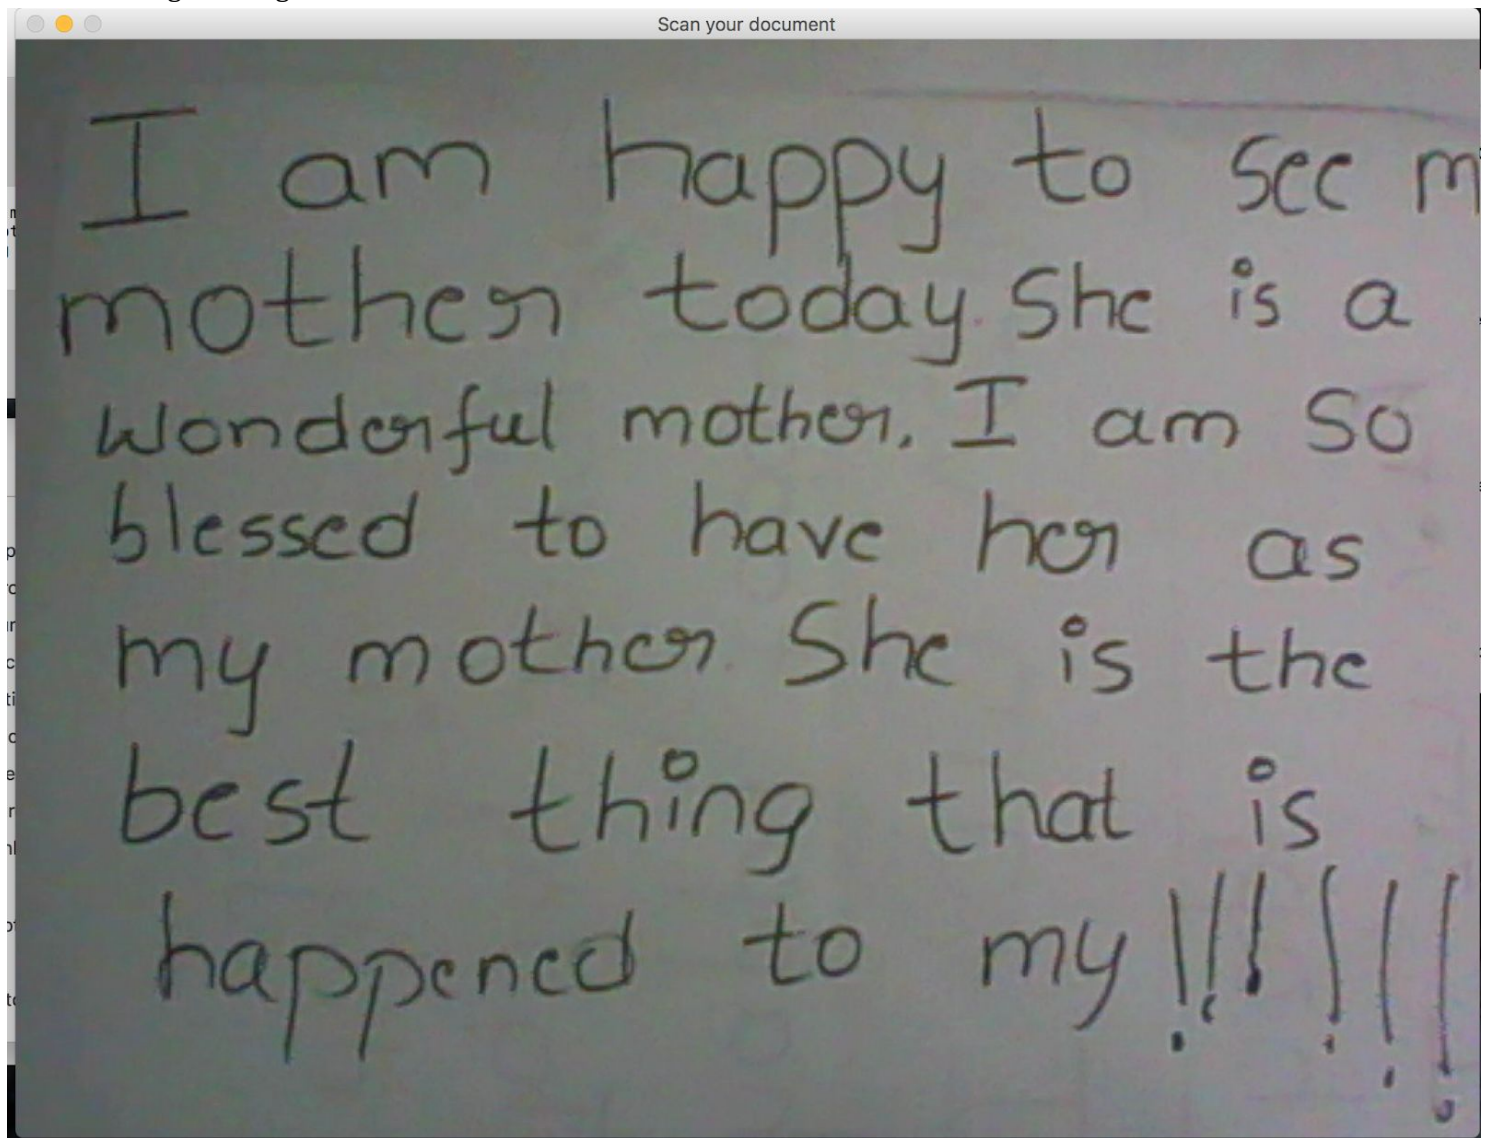 Scan your document
I am happy to see m
mother today. She is a
wonderful mother. I am so
blessed to have her as
my mother. She is the
best thing that is
happened to my !!!!!!